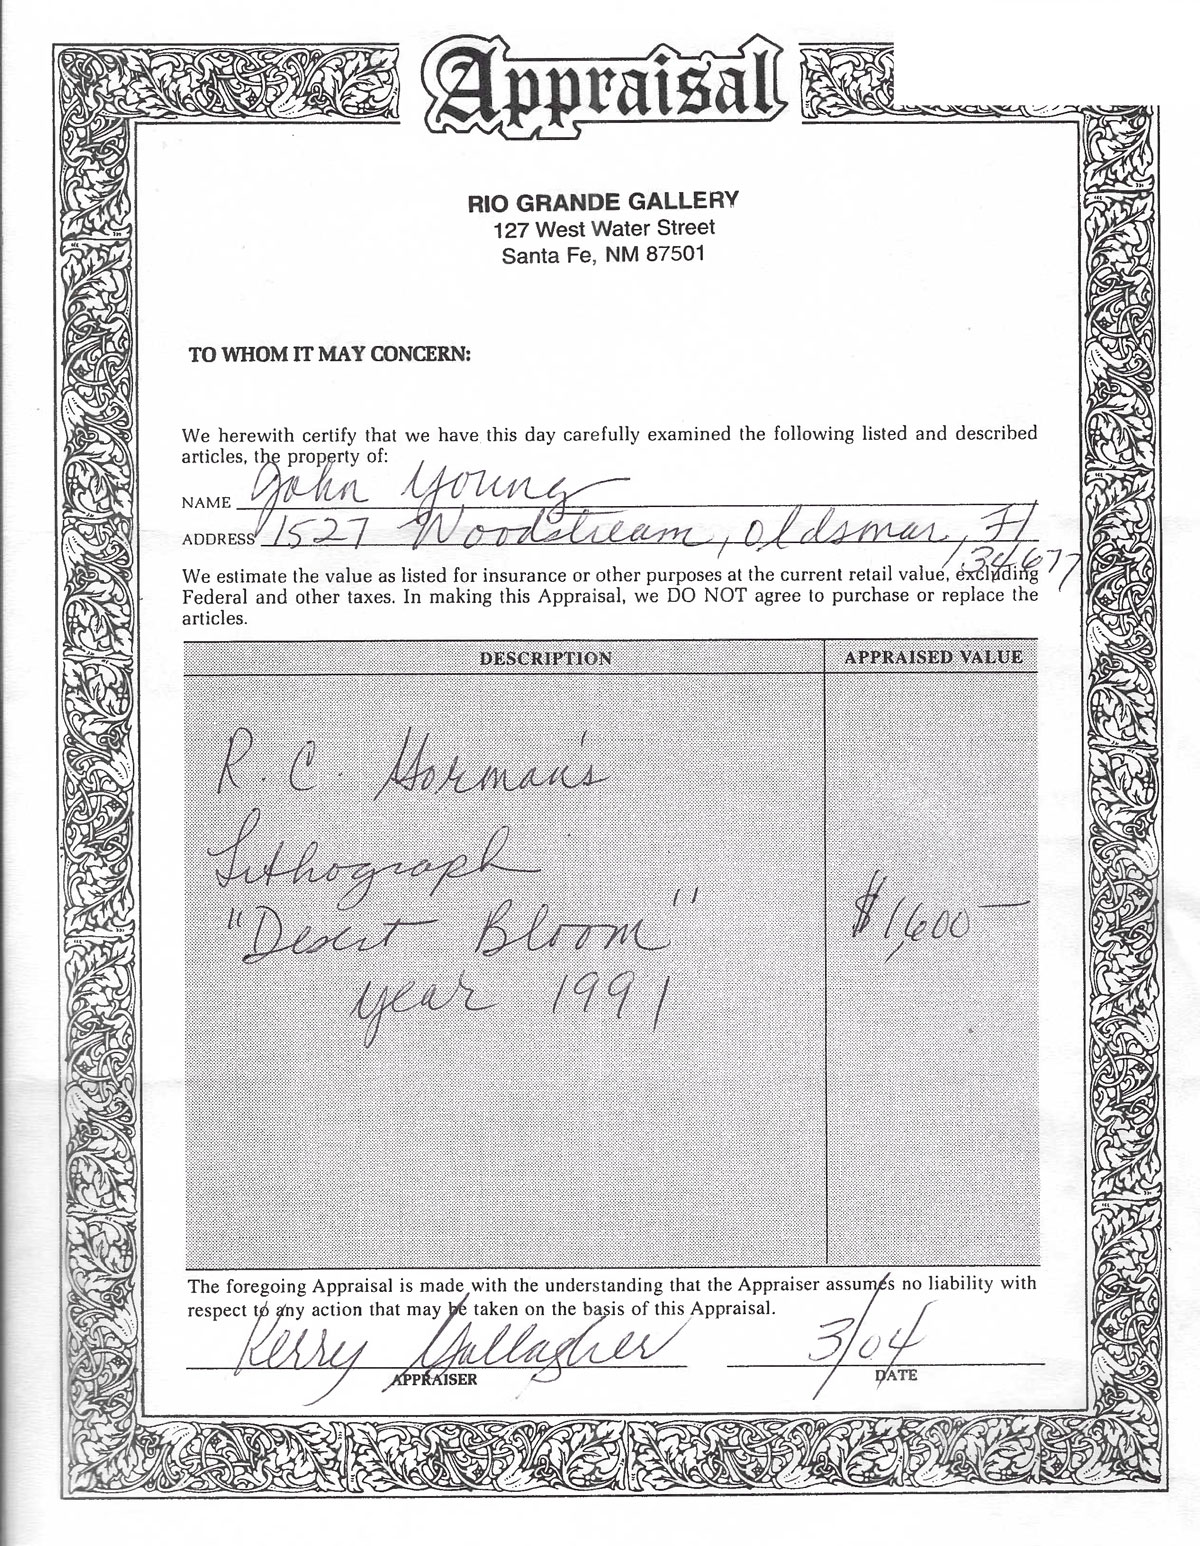 Appraisal
RIO GRANDE GALLERY
127 West Water Street
Santa Fe, NM 87501
TO WHOM IT MAY CONCERN:
We herewith certify that we have this day carefully examined the following listed and described
articles, the property of:
NAME John Young
ADDRESS 1527 Woodstream, Oldsmar, Fl
34677
We estimate the value as listed for insurance or other purposes at the current retail value, excluding
Federal and other taxes. In making this Appraisal, we DO NOT agree to purchase or replace the
articles.
DESCRIPTION APPRAISED VALUE
R. C. Gorman's
Lithograph
"Desert Bloom" $1,600—
year 1991
The foregoing Appraisal is made with the understanding that the Appraiser assumes no liability with
respect to any action that may be taken on the basis of this Appraisal.
Kerry Gallagher 3/04
APPRAISER DATE